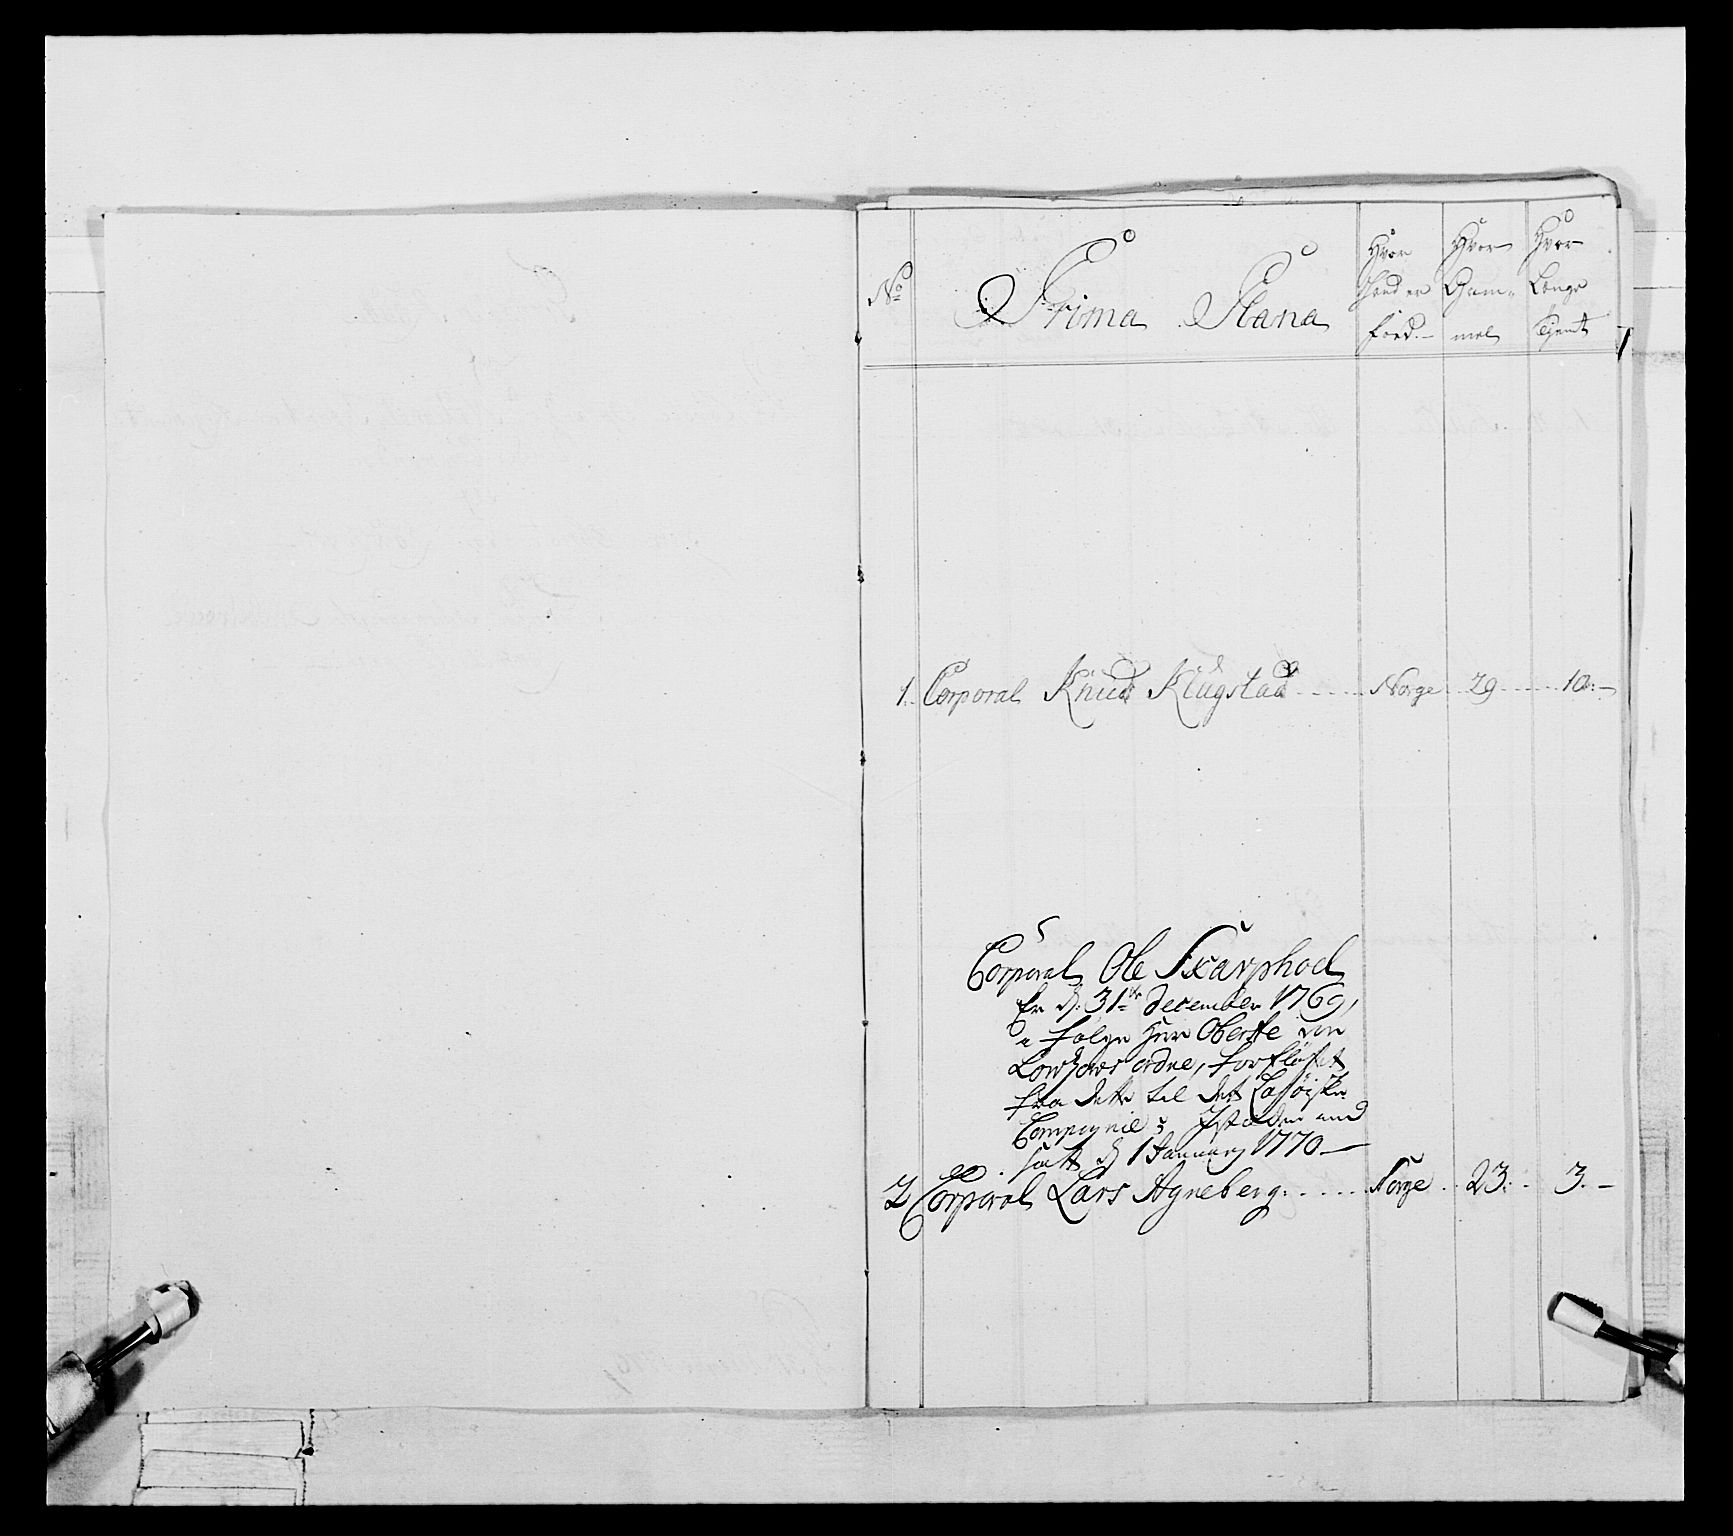 No
Prima Plana
Hvor
fød er
fød.
Hvor
Gam-
mel
Hvor
Længe
Tjent
1. Corporal Knud Klugstad Norge 29 10.
Corporal Ole Skarphoel
Er d. 31te December 1769,
i følge Herr Oberste von
Ordre, forfløtet
fra dette til det
Compagnie; Istæden and
satt d 1 January 1770
2 Corporal Lars Agneberg Norge 23. 3.